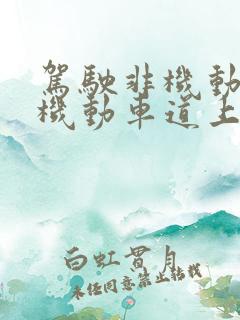 駕駛非機動
機動車道上
白虹貫月
未經同意禁止轉載